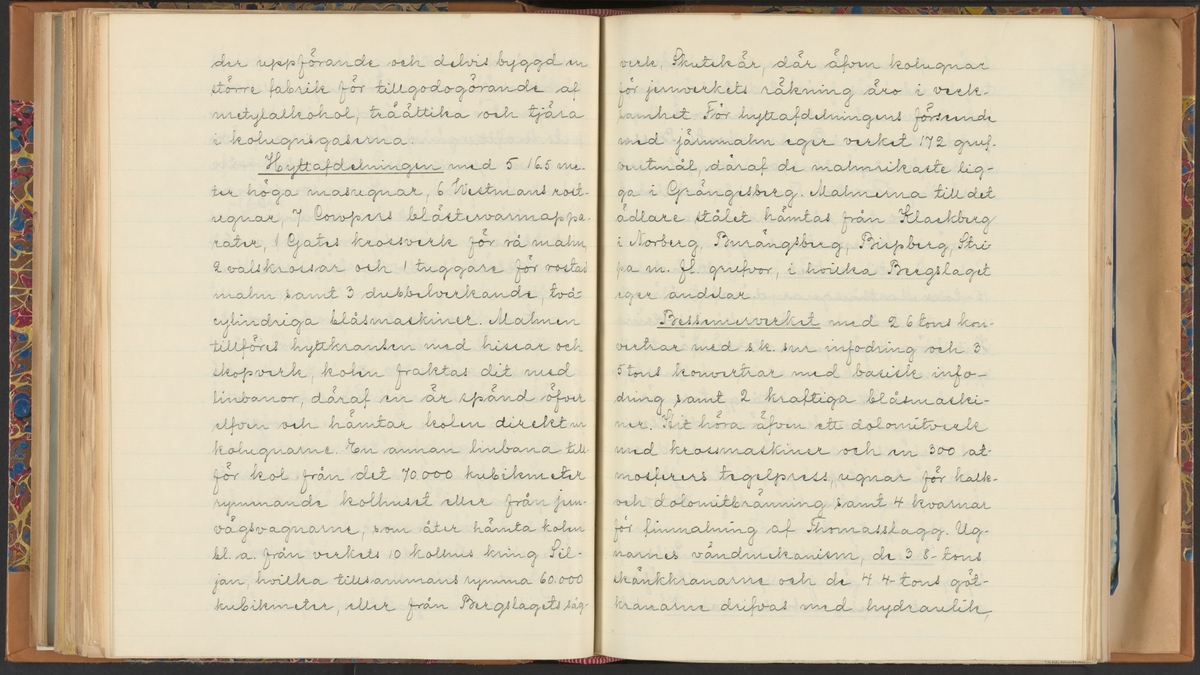 der uppförande och delvis byggd en
större fabrik för tillgodogörande af
metylalkohol, träättika och tjära
i kolugnsgaserna.
Hyttafdelningen med 5 16.5 me-
ter höga masugnar, 6 Westmans rost-
ugnar, 7 Cowpers blästervarmappa-
rater, 1 Gates krossverk för rå malm,
2 valskrossar och 1 tuggare för rostad
malm samt 3 dubbelverkande, två-
cylindriga blåsmaskiner. Malmen
tillföres hyttkransen med hissar och
skopverk, kolen fraktas dit med
linbanor, däraf en är spänd öfver
elfven och hämtar kolen direkt ur
kolugnarne. En annan linbana till-
för kol från det 70.000 kubikmeter
rymmande kolhuset eller från jern-
vägsvagnarne, som åter hämta kolen
bl. a. från verkets 10 kolhus kring Sil-
jan, hvilka tillsammans rymma 60.000
kubikmeter, eller från Bergslagets såg-
verk, Skutskär, där äfven kolugnar
för jernverkets räkning äro i verk-
samhet. För hyttafdelningens förseende
med järnmalm eger verket 172 gruf-
veutmål, däraf de malmrikaste lig-
ga i Grängesberg. Malmerna till det
ädlare stålet hämtas från Klackberg
i Norberg, Burängsberg, Bispberg, Stri-
pa m. fl. grufvor, i hvilka Bergslaget
eger andelar.
Bessemerverket med 2 6 tons kon-
vertrar med s.k. sur infodring och 3
5 tons konvertrar med basisk info-
dring samt 2 kraftiga blåsmaski-
ner. Hit höra äfven ett dolomitverk
med krossmaskiner och en 300 at-
mosferers tegelpress, ugnar för kalk-
och dolomitbränning samt 4 kvarnar
för finmalning af Thomasslagg. Ug-
narnes vändmekanism, de 3 8-tons
skänkkranarne och de 4 4-tons göt-
kranarne drifvas med hydraulik,